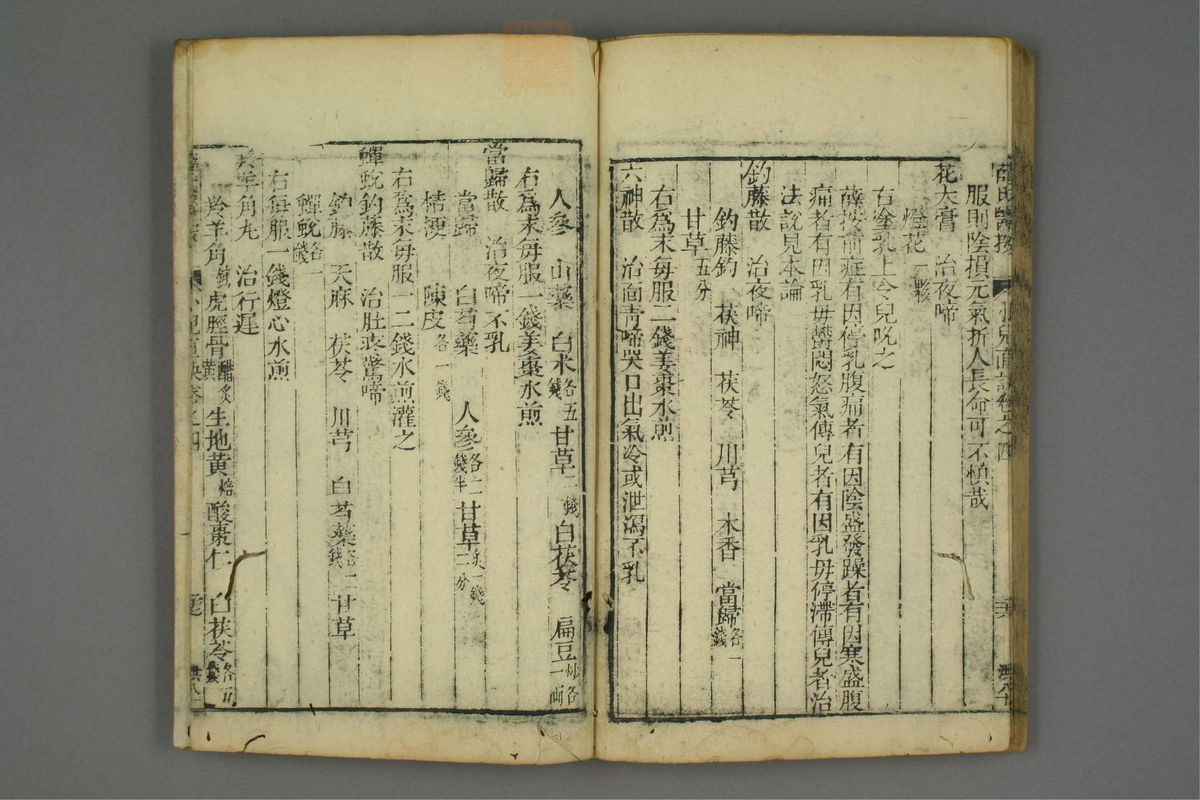 薛氏醫按 小兒直訣卷之四
服則陰損元氣折人長命可不慎哉
花火膏 治夜啼
燈花一顆
右塗乳上令兒吮之
薛按前症有因停乳腹痛者有因陰盛發躁者有因寒盛腹
痛者有因乳母鬱悶怒氣傳兒者有因乳母停滯傳兒者治
法說見本論
釣藤散 治夜啼
釣藤鈎 茯神 茯苓 川芎 木香 當歸各一錢
甘草五分
右為末每服二錢姜棗水煎
六神散 治面青啼哭口出氣冷或泄瀉不乳
人參 山藥 白朮各五錢 甘草二錢 白茯苓 扁豆炒各一兩
右為末每服一錢姜棗水煎
當歸散 治夜啼不乳
當歸 白芍藥 人參各二錢半 甘草炙一錢二分
桔梗 陳皮各一錢
右為末每服一二錢水煎灌之
蟬蛻釣藤散 治肚疼驚啼
釣藤 天麻 茯苓 川芎 白芍藥各二錢 甘草
蟬蛻各一錢
右每服一錢燈心水煎
羚羊角丸 治行遲
羚羊角鎊 虎脛骨醋炙黃 生地黄焙 酸棗仁 白茯苓各五錢
小兒直訣卷之四